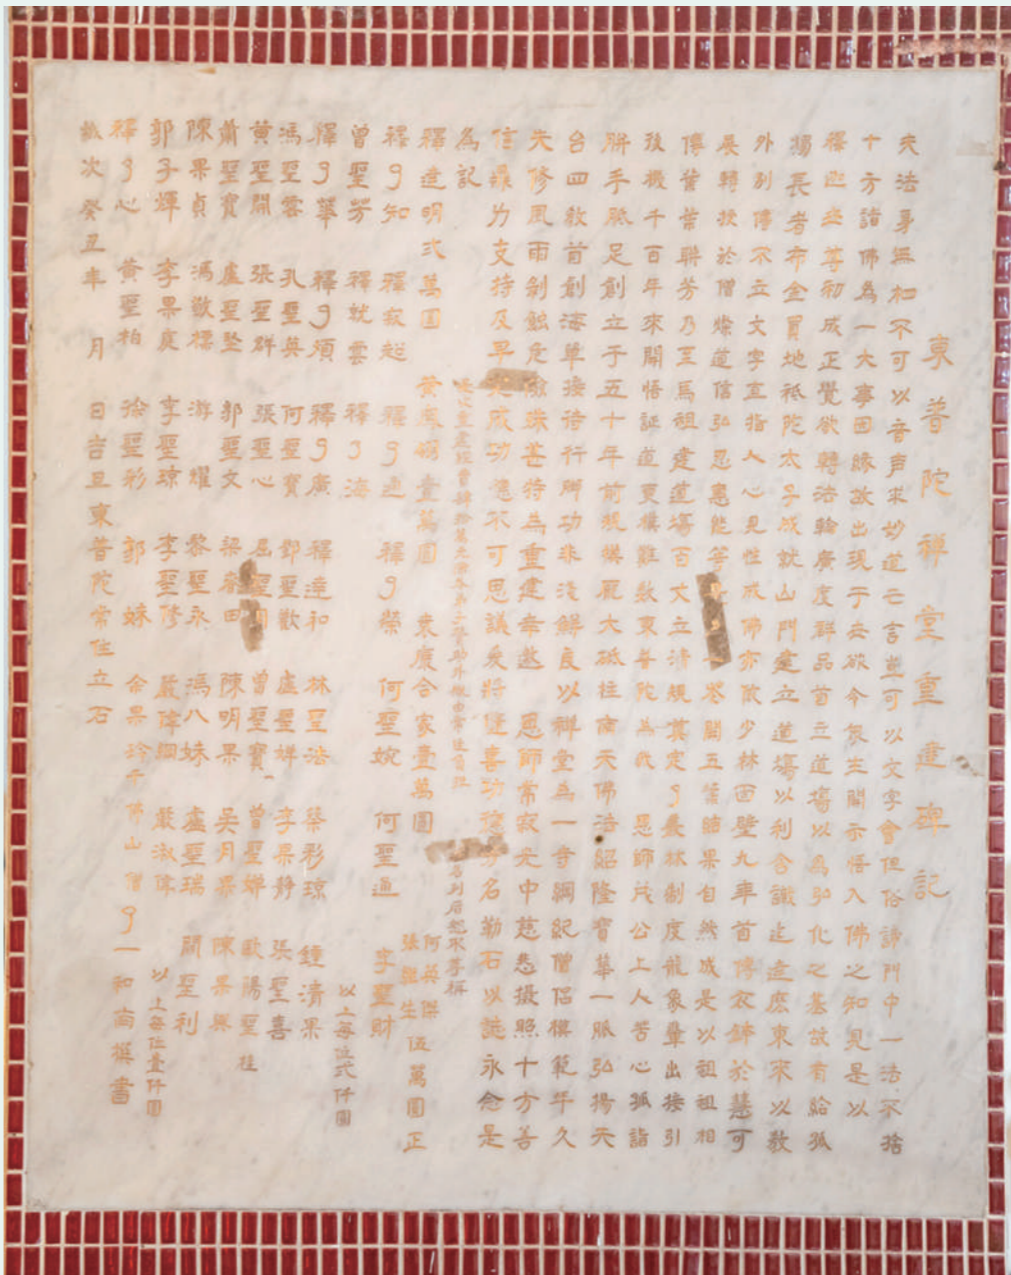 東普陀禪堂重建碑記
夫法身無相不可以音声求妙道亡言豈可以文字會但俗諦門中一法不捨
十方諸佛為一大事因緣故出現于世欲令衆生開示悟入佛之知見是以
釋迦世尊初成正覺欲轉法輪廣度群品首立道場以為弘化之基故有給孤
獨長者布金買地祗陀太子成就山門建立道場以利含識迨達庶東來以教
外別傳不立文字直指人心見性成佛亦依少林面壁九年首傳衣鉢於慧可
展轉授於僧燦道信弘忍惠能等花開五葉結果自然成是以祖祖相
傳葉葉聯芳乃至馬祖建道場百丈立清規奠定了叢林制度龍象輩出接引
後機千百年來開悟証道更僕難数東普陀為我 恩師茂公上人苦心孤詣
胼手胝足創立于五十年前規模厖大砥柱南天佛法紹隆實華一脈弘揚天
台四教首創海單接待行脚功未淺鮮良以禪堂為一寺綱紀僧侣模範年久
失修風雨剝蝕危險殊甚特為重建幸愁 恩師常寂光中慈悲攝照十方善
信緣力支持及早完成功德不可思議爰將隨喜功德芳名勒石以誌永念是
為記
釋達明弍萬圓 黄無嬌壹萬圓 袁廣合家壹萬圓 何英傑 張聖生 伍萬圓正
釋了知 釋寂超 釋了通 釋了榮 何聖婉 何聖通 李聖財
曾聖芳 釋就雲 釋了海 以上每位弍仟圓
釋了華 釋了須 釋了廣 釋達和 林聖法 葉彩琼 鐘清果
馮聖雲 孔聖英 何聖寶 鄧聖歡 盧聖祥 李果静 張聖喜
黄聖開 張聖群 張聖心 屈聖 曾聖寶 曾聖嬋 歐陽聖桂
蕭聖寶 盧聖堅 郭聖文 梁田 陳明果 吳月果 陳果果
陳果貞 馮敬標 游耀 黎聖永 馮八妹 盧聖瑞 關聖利
郭子輝 李果庚 李聖琼 李聖修 嚴偉綱 嚴淑偉 以上每位壹仟圓
釋了心 黄聖柏 徐聖彩 郭妹 余果玲 千佛山僧了一和尚撰書
歲次癸丑年 月 日吉旦東普陀常住立石